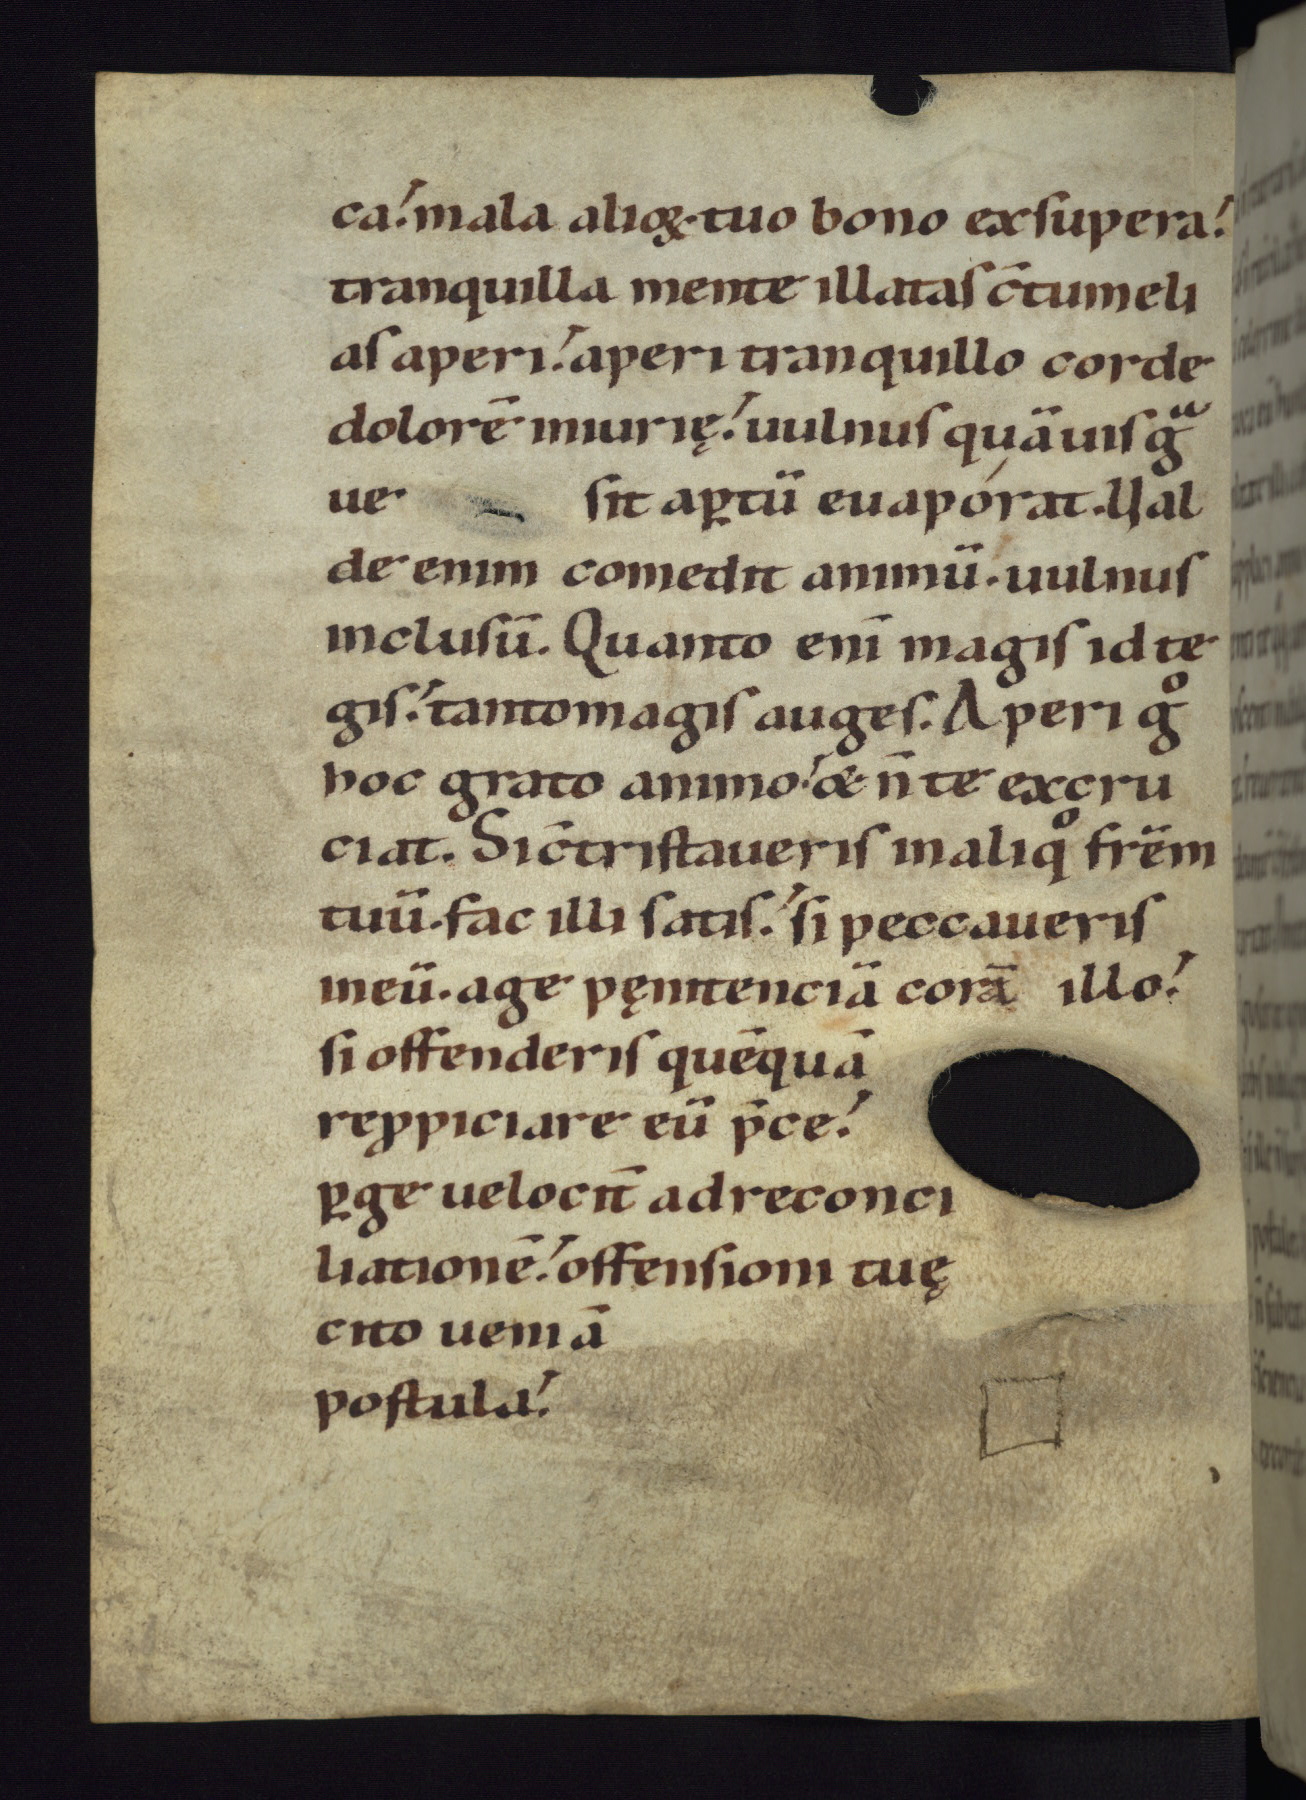 ca. mala alioꝝ tuo bono exsupera.
tranquilla mente illatas c̄tumeli
as aperi. aperi tranquillo corde
dolorē iniurię. uulnus quāuis gͣ
ue sit aꝑtū euapórat. Ual
de enim comedit animū. uulnus
inclusū. Quanto enī magis id te
gis. tanto magis auges. Aperi gͦ
hoc grato animo. & n̄ te excru
ciat. Si c̄tristaueris in aliqͦ frēm
tuū. fac illi satis. si peccaueris
in eū. age pęnitenciā corā illo.
si offenderis quēquā
reꝓpiciare eū p̄ce.
ꝑge uelocit̄ ad reconci
liationē. offensioni tuę
cito ueniā
postula.